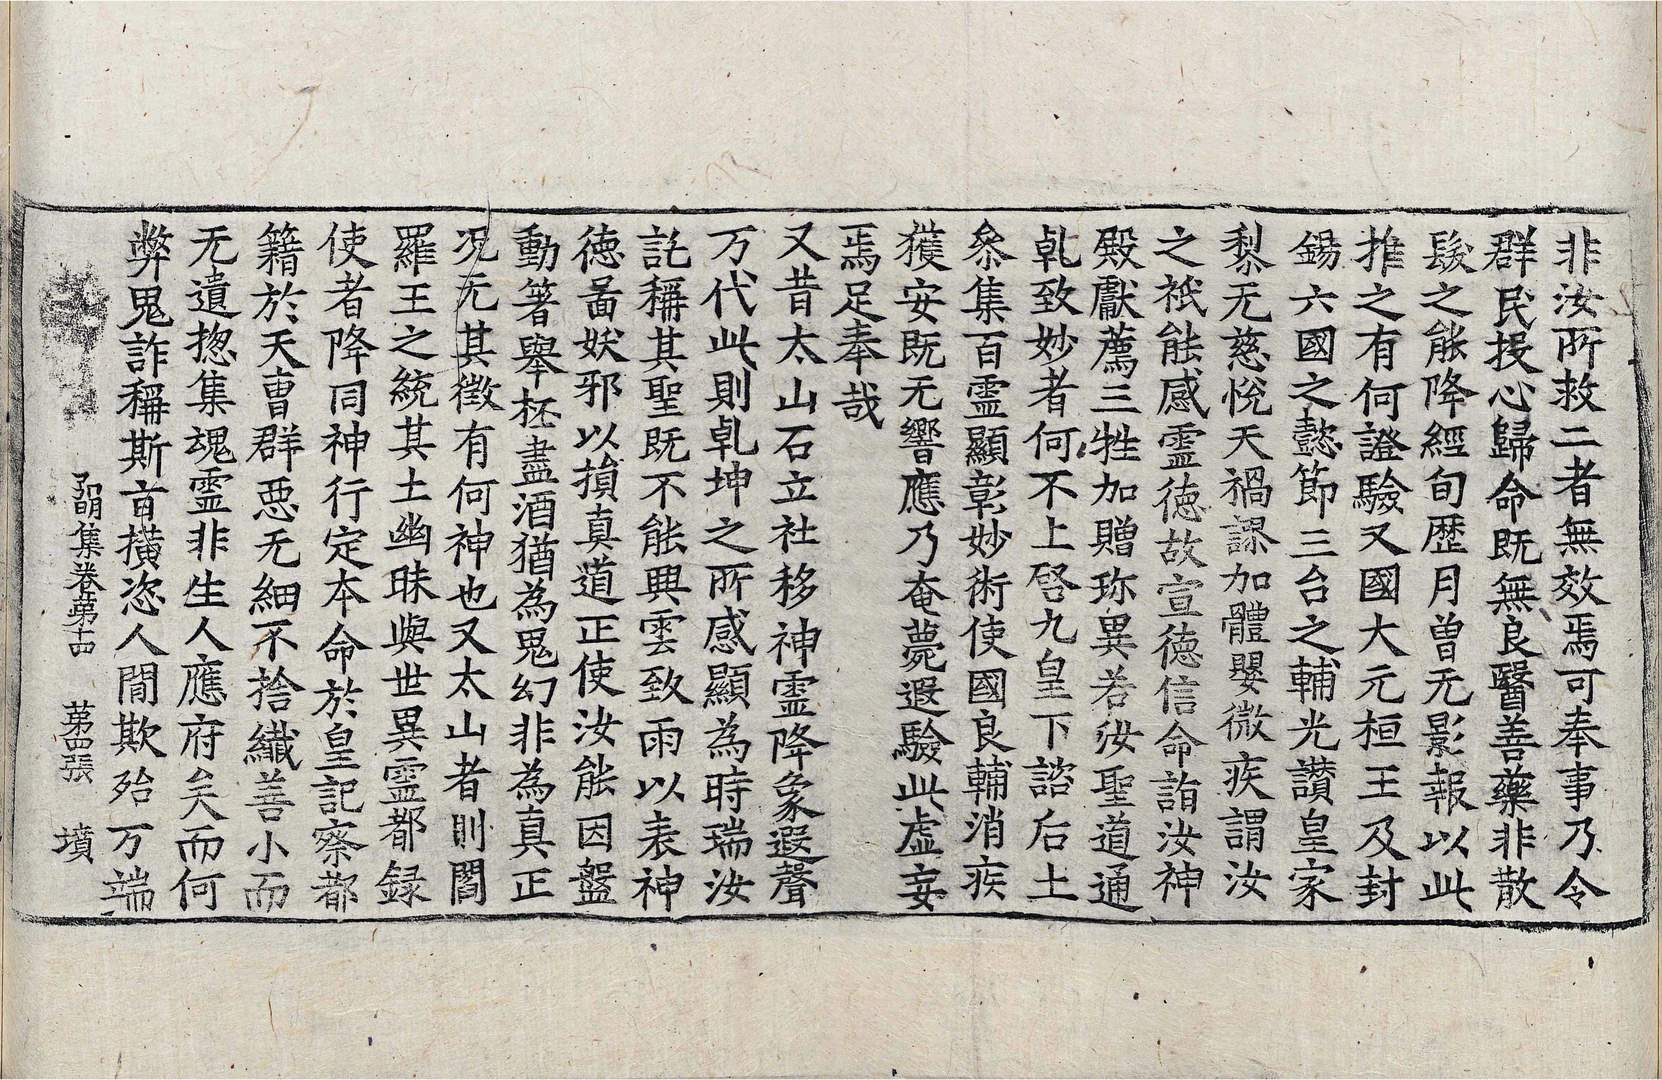 非汝所救二者無效焉可奉事乃令
群民投心歸命既無良醫善藥非散
髮之能降經旬歷月曾无影報以此
推之有何證驗又國大元桓王及封
錫六國之懿節三台之輔光讚皇家
梨无慈悅天禍謬加體嬰微疾謂汝
之祇能感霊德故宣德信命詣汝神
殿獻薦三牲加贈珎異若汝聖道通
乹致妙者何不上啓九皇下諮后土
叅集百霊顯彰妙術使國良輔消疾
獲安既无響應乃奄薨遐驗此虛妄
焉足奉哉
又昔太山石立社移神霊降象遐聲
万代此則乹坤之所感顯為時瑞汝
託稱其聖既不能興雲致雨以表神
徳啚妖邪以損真道正使汝能因盤
動箸舉柸盡酒猶為鬼幻非為真正
況无其徵有何神也又太山者則閻
羅王之統其土幽昧與世異霊都録
使者降同神行定本命於皇記察都
籍於天曹群惡无細不捨纖善小而
无遺揔集魂霊非生人應府矣而何
弊鬼詐稱斯旨橫恣人間欺殆万端
弘明集卷第十四 第四張 墳